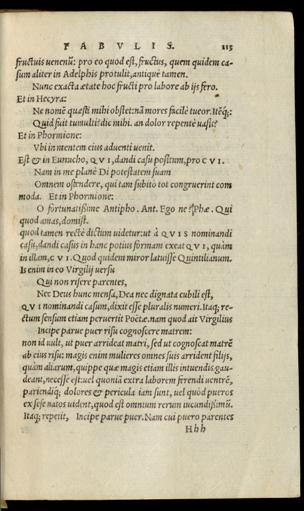 FABVLIS. 115
fructuis uenenũ: pro eo quod est, fructus, quem quidem ca-
sum aliter in Adelphis protulit, antiquè tamen.
Nunc exacta ætate hoc fructi pro labore ab ijs fero.
Et in Hecyra:
Ne nomẽ quæsti mihi obstet: nã mores facilè tueor. Itẽq;:
Quid suit tumulti? dic mihi. an dolor repentè uasit?
Et in Phormione:
Vbi in mentem eius aduenti uenit.
Est & in Eunucho, QVI, dandi casu positum, pro CVI.
Nam in me planè Di potestatem suam
Omnem ostendere, qui tam subitò tot congruerint com
moda. Et in Phormione:
O fortunatissime Antipho. Ant. Ego ne? Phæ. Qui
quod amas, domist.
quod tamen rectè dictum uidetur: ut à QVIS nominandi
casu, dandi casus in hanc potius formam exeat QVI, quàm
in illam, CVI. Quod quidem miror latuisse Quintilianum.
Is enim in eo Virgilij uersu
Qui non risere parentes,
Nec Deus hunc mensa, Dea nec dignata cubili est,
QVI nominandi casum, dixit esse pluralis numeri. Itaq; re-
ctum sensum etiam peruertit Poëtæ. nam quod ait Virgilius
Incipe parue puer risu cognoscere matrem:
non id uult, ut puer arrideat matri, sed ut cognoscat matrẽ
ab eius risu: magis enim mulieres omnes suis arrident filijs,
quàm aliarum, quippe quæ magis etiam illis intuendis gau-
deant, necesse est: uel quoniã extra laborem ferendi uentrẽ,
pariendiq; dolores & pericula iam sunt, uel quòd pueros
ex sese natos uident, quod est omnium rerum iucundissimũ.
Itaq; repetit, Incipe parue puer. Nam cui puero parentes
Hhh